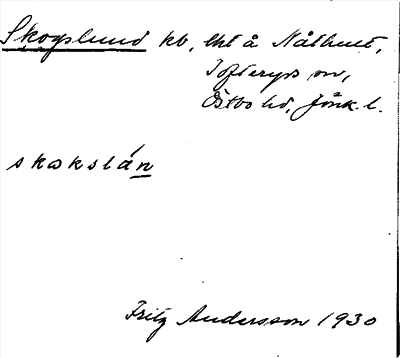 Skogslund kb, lht å Nålhult,
Tofteryds sn,
Östbo hd, Jönk. l.
skωkslán
Fritz Andersson 1930